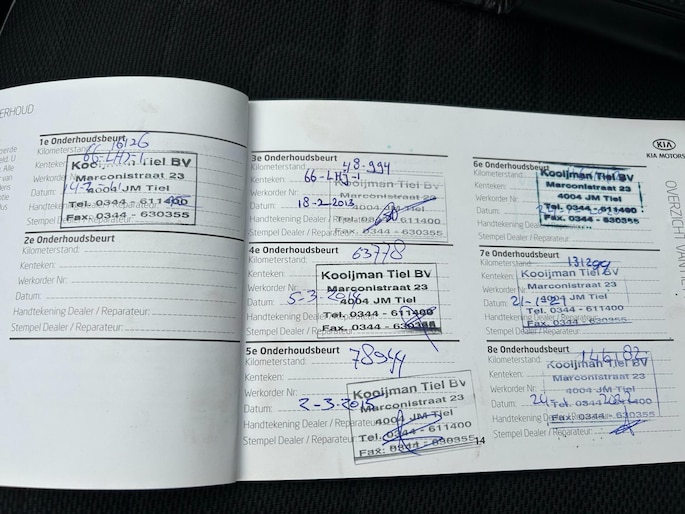 ERHOUD
1e Onderhoudsbeurt
Kilometerstand: 16126
Kenteken: 66-LHJ-1
Werkorder Nr.
Datum:
Handtekening Dealer
Stempel Dealer / Rep
Kooijman Tiel BV
Marconistraat 23
4004 JM Tiel
Tel. 0344 - 611400
Fax. 0344 - 630355
2e Onderhoudsbeurt
Kilometerstand:
Kenteken:
Werkorder Nr:
Datum:
Handtekening Dealer / Reparateur:
Stempel Dealer / Reparateur:
3e Onderhoudsbeurt
Kilometerstand: 48-994
Kenteken: 66-LHJ-1
Werkorder Nr.
Datum: 18-2-2013
Handtekening Dealer / Reparateur
Stempel Dealer / Reparateur
Kooijman Tiel BV
Marconistraat 23
4004 JM Tiel
Tel. 0344 - 611400
Fax. 0344 - 630355
4e Onderhoudsbeurt
Kilometerstand: 63778
Kenteken:
Werkorder Nr:
Datum: 5-3-
Handtekening Dealer
Stempel Dealer / Rep
Kooijman Tiel BV
Marconistraat 23
4004 JM Tiel
Tel. 0344 - 611400
Fax. 0344 - 630355
5e Onderhoudsbeurt
Kilometerstand: 78944
Kenteken:
Werkorder Nr:
Datum: 2-3-2015
Handtekening Dealer / Reparateur
Stempel Dealer / Reparateur
Kooijman Tiel BV
Marconistraat 23
4004 JM Tiel
Tel. 0344 - 611400
Fax. 0344 - 630355
14
KIA
KIA MOTORS
6e Onderhoudsbeurt
Kilometerstand:
Kenteken:
Werkorder Nr.
Datum:
Handtekening Dealer
Stempel Dealer / Reparateur:
Kooijman Tiel BV
Marconistraat 23
4004 JM Tiel
Tel. 0344 - 611400
Fax. 0344 - 630355
7e Onderhoudsbeurt
Kilometerstand: 131299
Kenteken:
Werkorder Nr
Datum: 21-
Handtekening Dealer / Reparateur
Stempel Dealer / Reparateur
Kooijman Tiel BV
Marconistraat 23
4004 JM Tiel
Tel. 0344 - 611400
Fax. 0344 - 630355
8e Onderhoudsbeurt
Kilometerstand:
Kenteken:
Werkorder Nr:
Datum:
Handtekening Dealer / Reparateur
Stempel Dealer / Reparateur
Kooijman Tiel BV
Marconistraat 23
4004 JM Tiel
Tel. 0344 - 611400
Fax. 0344 - 630355
OVERZICHT VAN HET